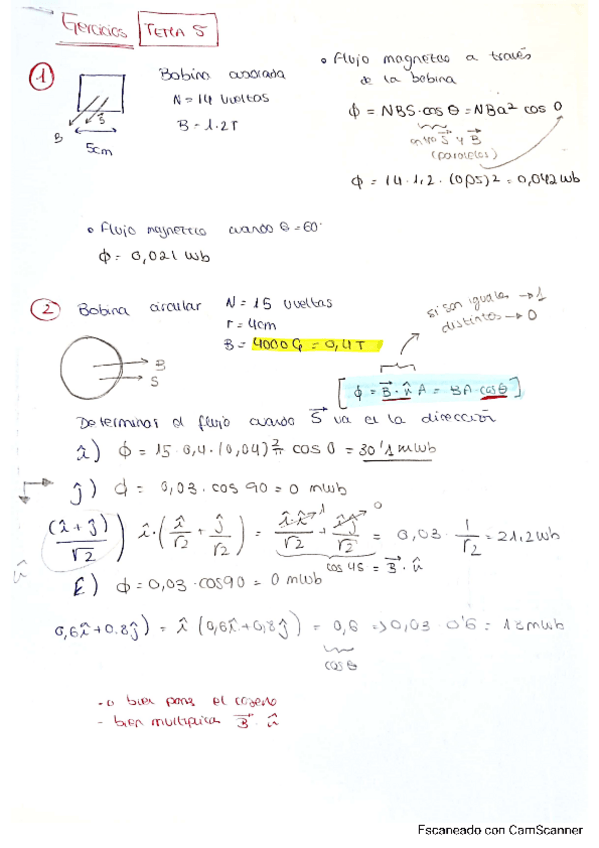 Ejercicios TEMA 5
1
Bobina cuadrada
N = 14 vueltas
B = 1.2 T
B S
5cm
• Flujo magnetico a través
de la bobina
ϕ = NBS·cos θ = NBa² cos 0
S y B
(paralelos)
ϕ = 14·1,2·(0,05)² = 0,042 wb
• Flujo magnetico cuando θ = 60°
ϕ = 0,021 wb
2 Bobina circular N = 15 vueltas
r = 4cm
B = 4000 G = 0,4 T
B
S
si son iguales → 1
distintos → 0
[ϕ = B·û A = BA·cosθ]
Determinar el flujo cuando S va en la dirección
î) ϕ = 15·0,4·(0,04)²π cos 0 = 30'1 mwb
ĵ) ϕ = 0,03·cos 90 = 0 mwb
(î+ĵ)/√2) î·(î/√2 + ĵ/√2) = î·î/√2 + î·ĵ/√2 = 0,03·1/√2 = 21.2 wb
1 0
cos 45 = B·û
û
k̂) ϕ = 0,03·cos90 = 0 mwb
0,6î+0.8ĵ) = î(0,6î+0,8ĵ) = 0,6 => 0,03·0'6 = 18mwb
cosθ
- o bien pones el coseno
- bien multiplicas B·û
Escaneado con CamScanner